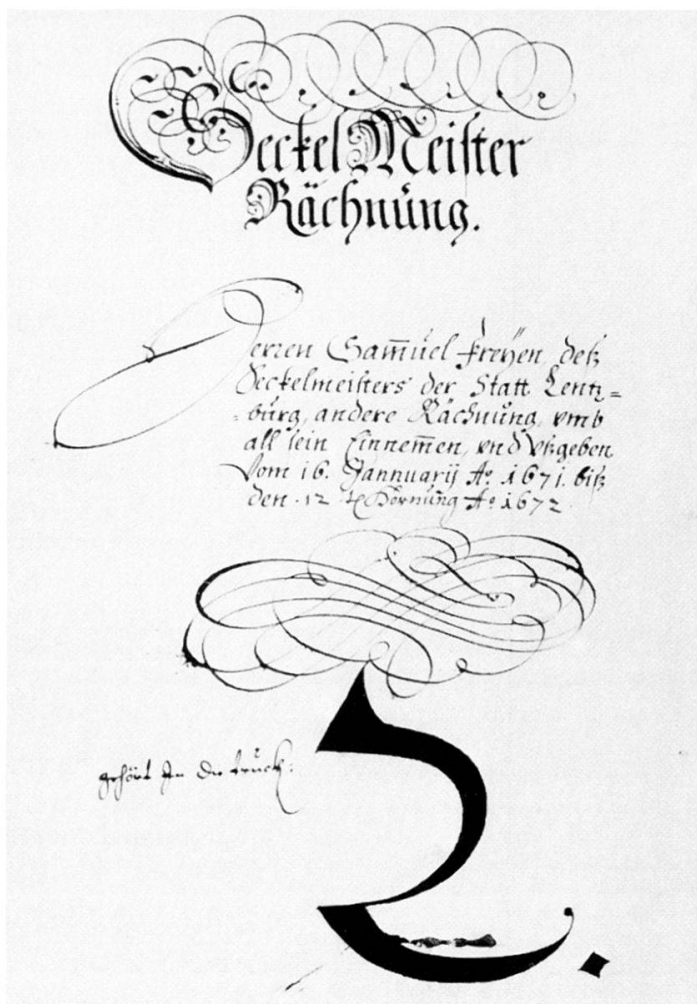 Seckel Meister
Rächnung.
Herren Sam̅uel Freÿen, deß
Seckelmeisters der Statt Lentz=
=burg, andere Rächnung, vmb
all sein Einnem̅en, vnd Vßgeben
Vom 16. Jannuarij A.º 1671. biß
den .12. Hornung A.º 1672
gehört In die truck:
Z.